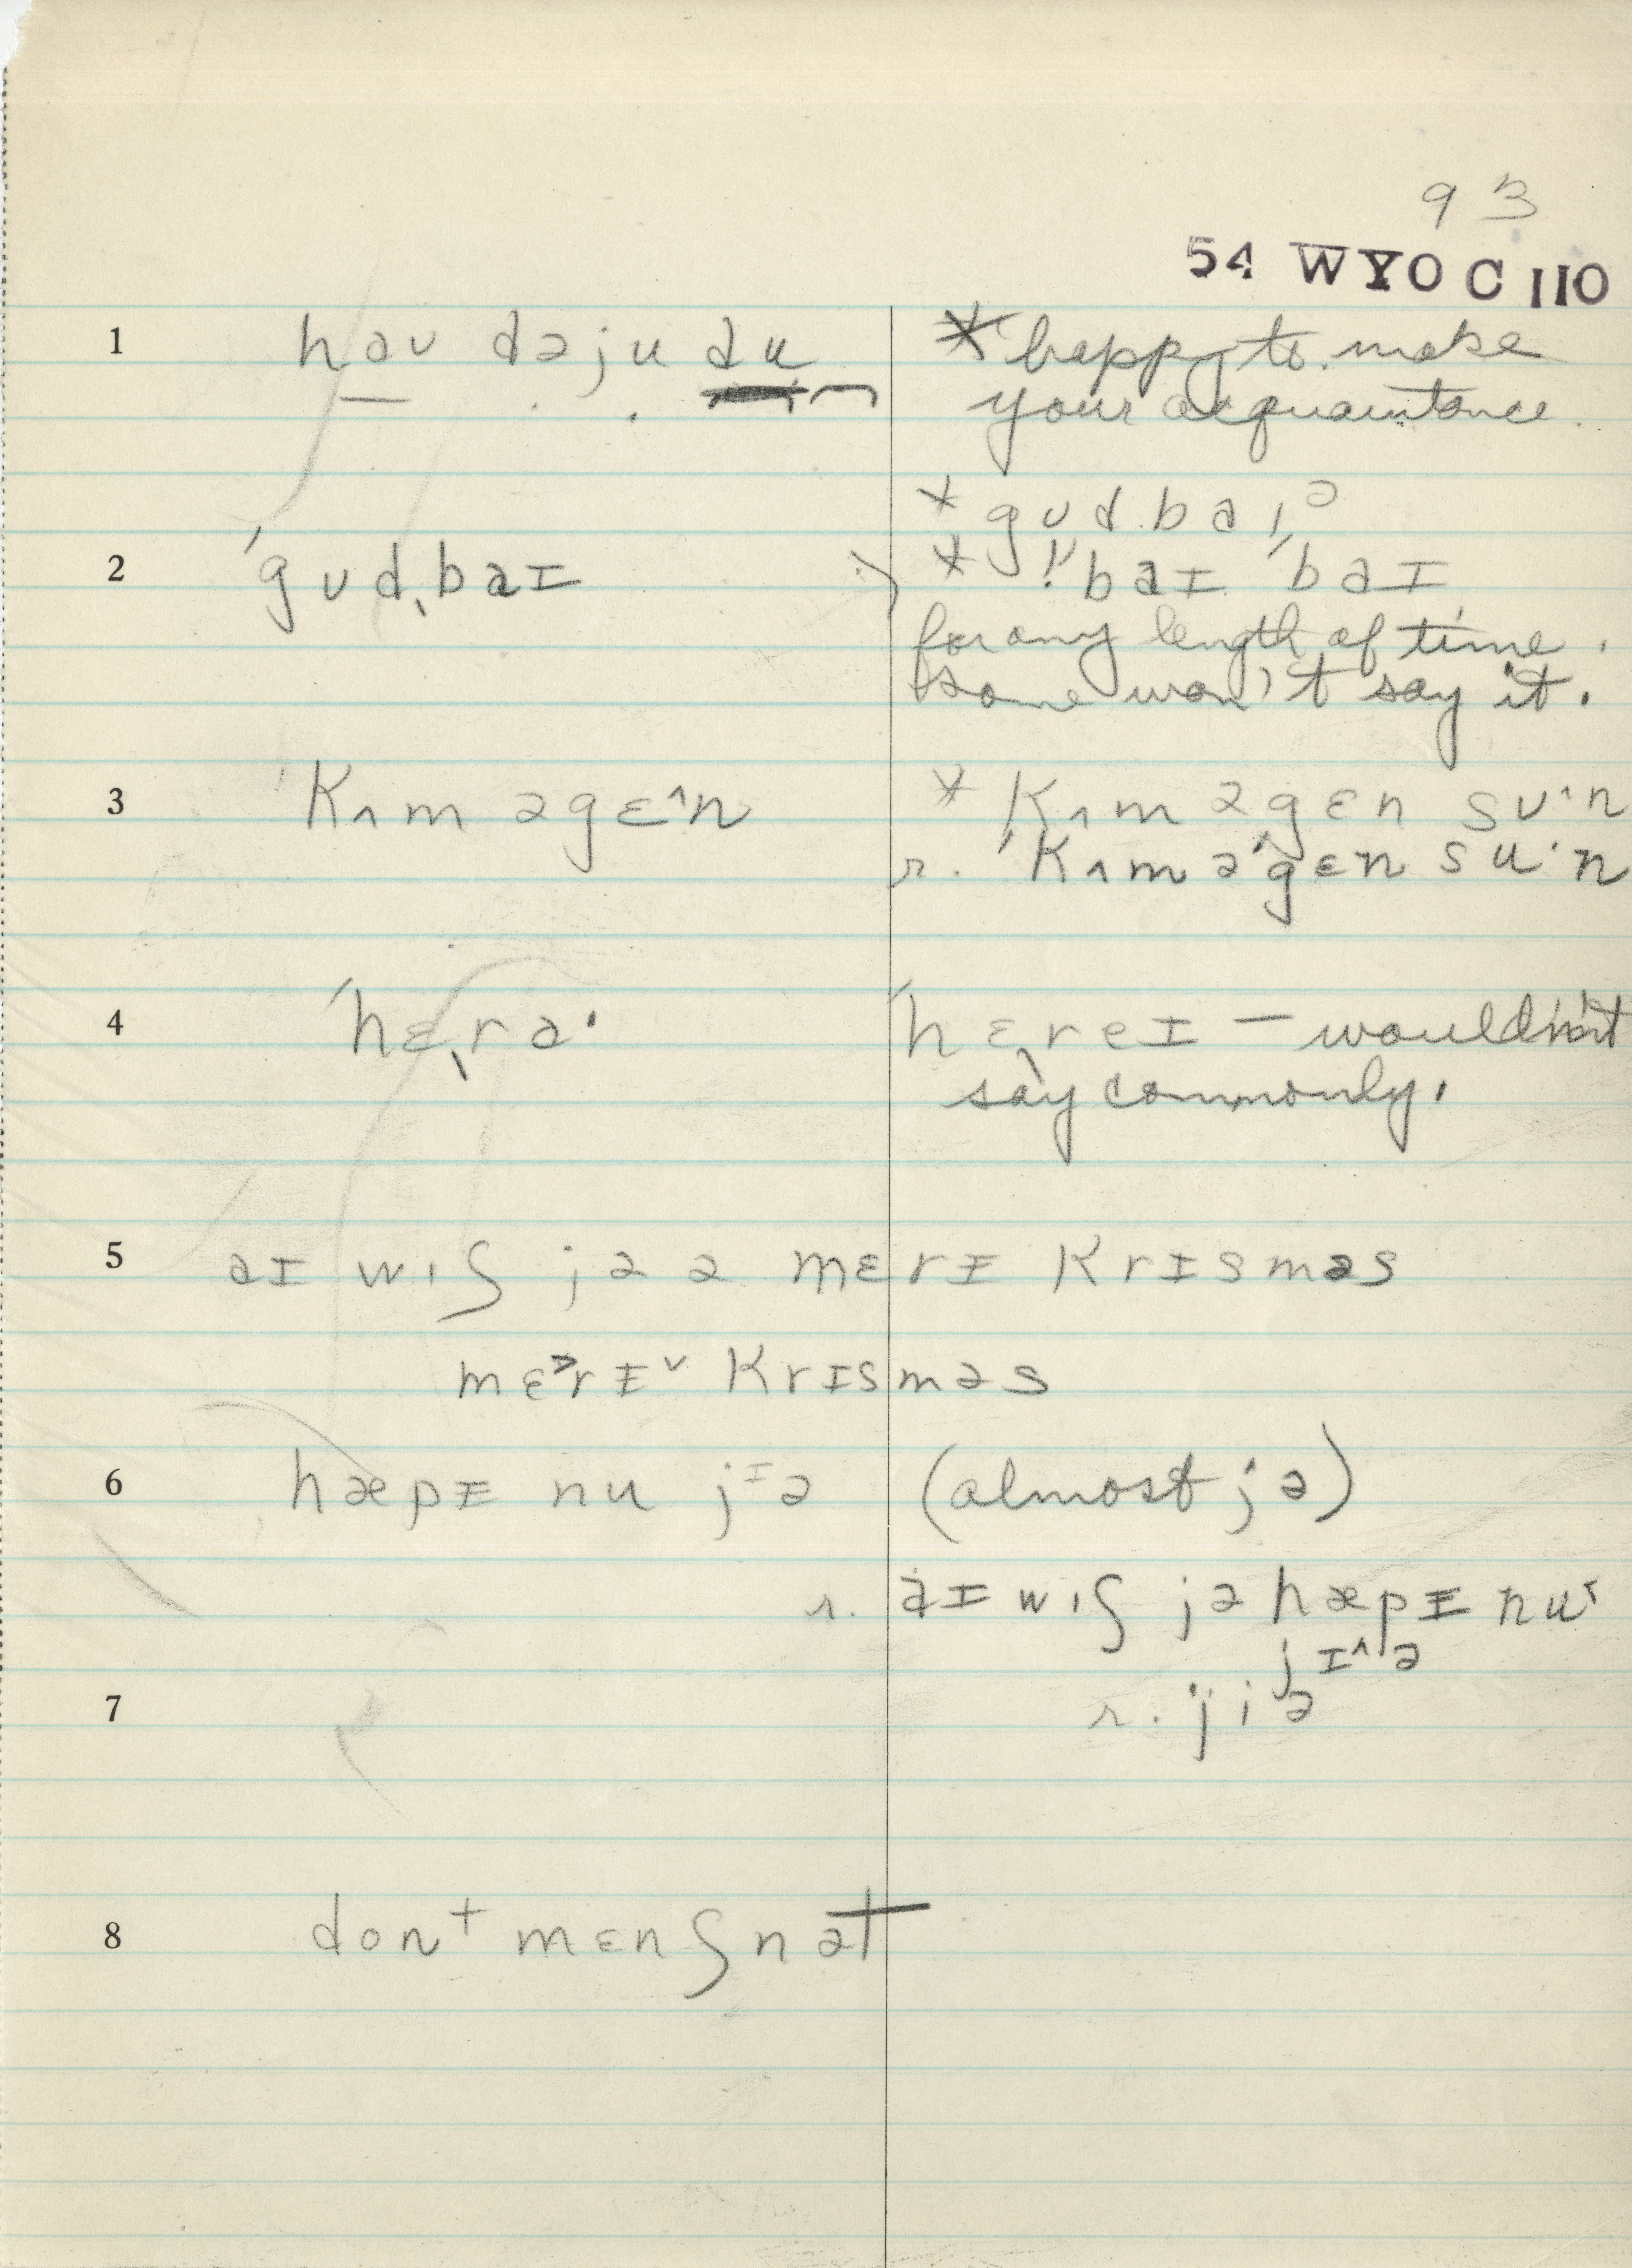 93
54 WYO C 110
1 haʊ dəju du *happy to make
your acquaintance.
*gʊd.ba,ə
2 ˈgʊdˌbaɪ *ˈbaɪ ˈbaɪ
for any length of time.
Some won't say it.
3 ˈkʌm əgɛ^n *kʌm əgɛn sʊ^n
r. ˈkʌm əˈgɛn su·n
4 ˈhɛˌra· ˈhɛˌreɪ – wouldn't
say commonly.
5 aɪ wɪʃ jə ə mɛrɪ krɪsməs
mɛ˃rɪ˅ krɪsməs
6 hæpɪ nu jᶦə (almost jə)
r. aɪ wɪʃ jə hæpɪ nu˂
jɪ^ə
7 r. jiə
8 donᵗ mɛnʃn ət